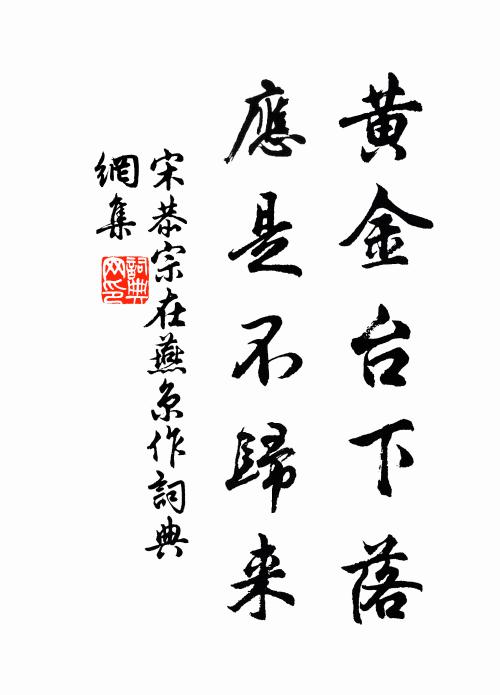 黄金台下落
應是不歸来
宋恭宗在燕京作詞典
網集
詞典網印